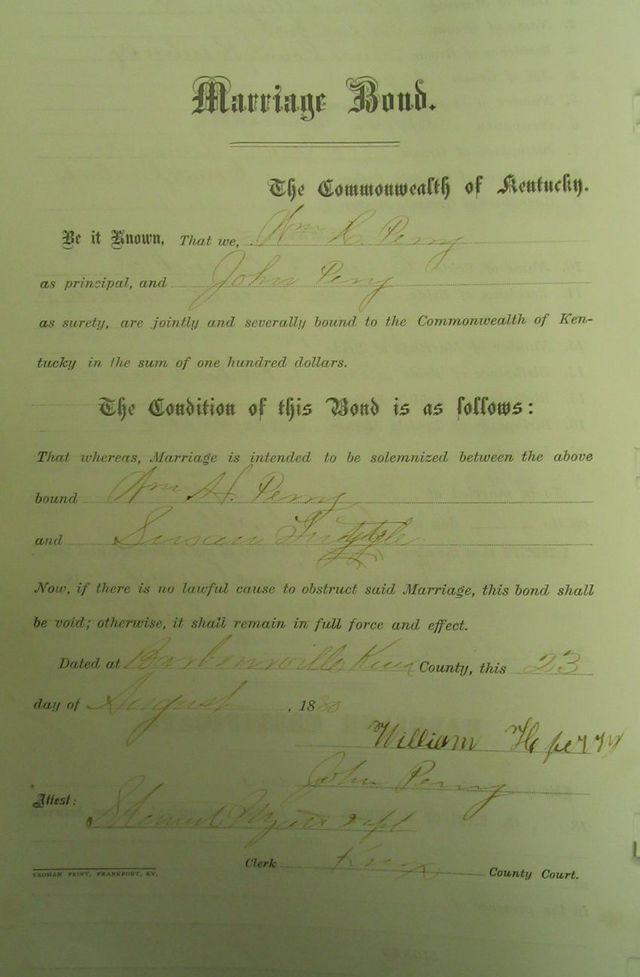 Marriage Bond.
The Commonwealth of Kentucky.
Be it Known, That we, Wm H. Perry
as principal, and John Perry
as surety, are jointly and severally bound to the Commonwealth of Ken-
tucky in the sum of one hundred dollars.
The Condition of this Bond is as follows:
That whereas, Marriage is intended to be solemnized between the above
bound Wm H. Perry
and Susan
Now, if there is no lawful cause to obstruct said Marriage, this bond shall
be void; otherwise, it shall remain in full force and effect.
Dated at Barbourville Knox County, this 23
day of August, 1880
William H perry
John Perry
Attest:
Clerk Knox County Court.
YEOMAN PRINT, FRANKFORT, KY.